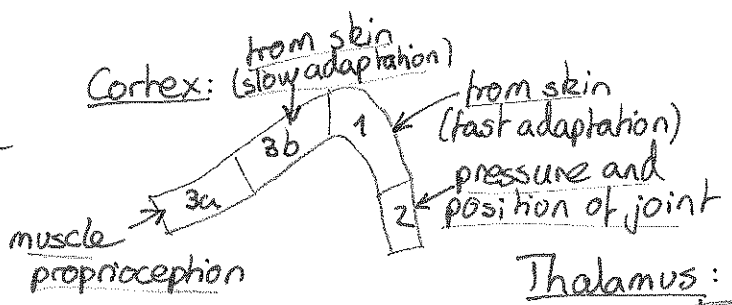 Cortex:
from skin
(slow adaptation)
from skin
(fast adaptation)
pressure and
position of joint
muscle
proprioception
3a
3b
1
2
Thalamus: